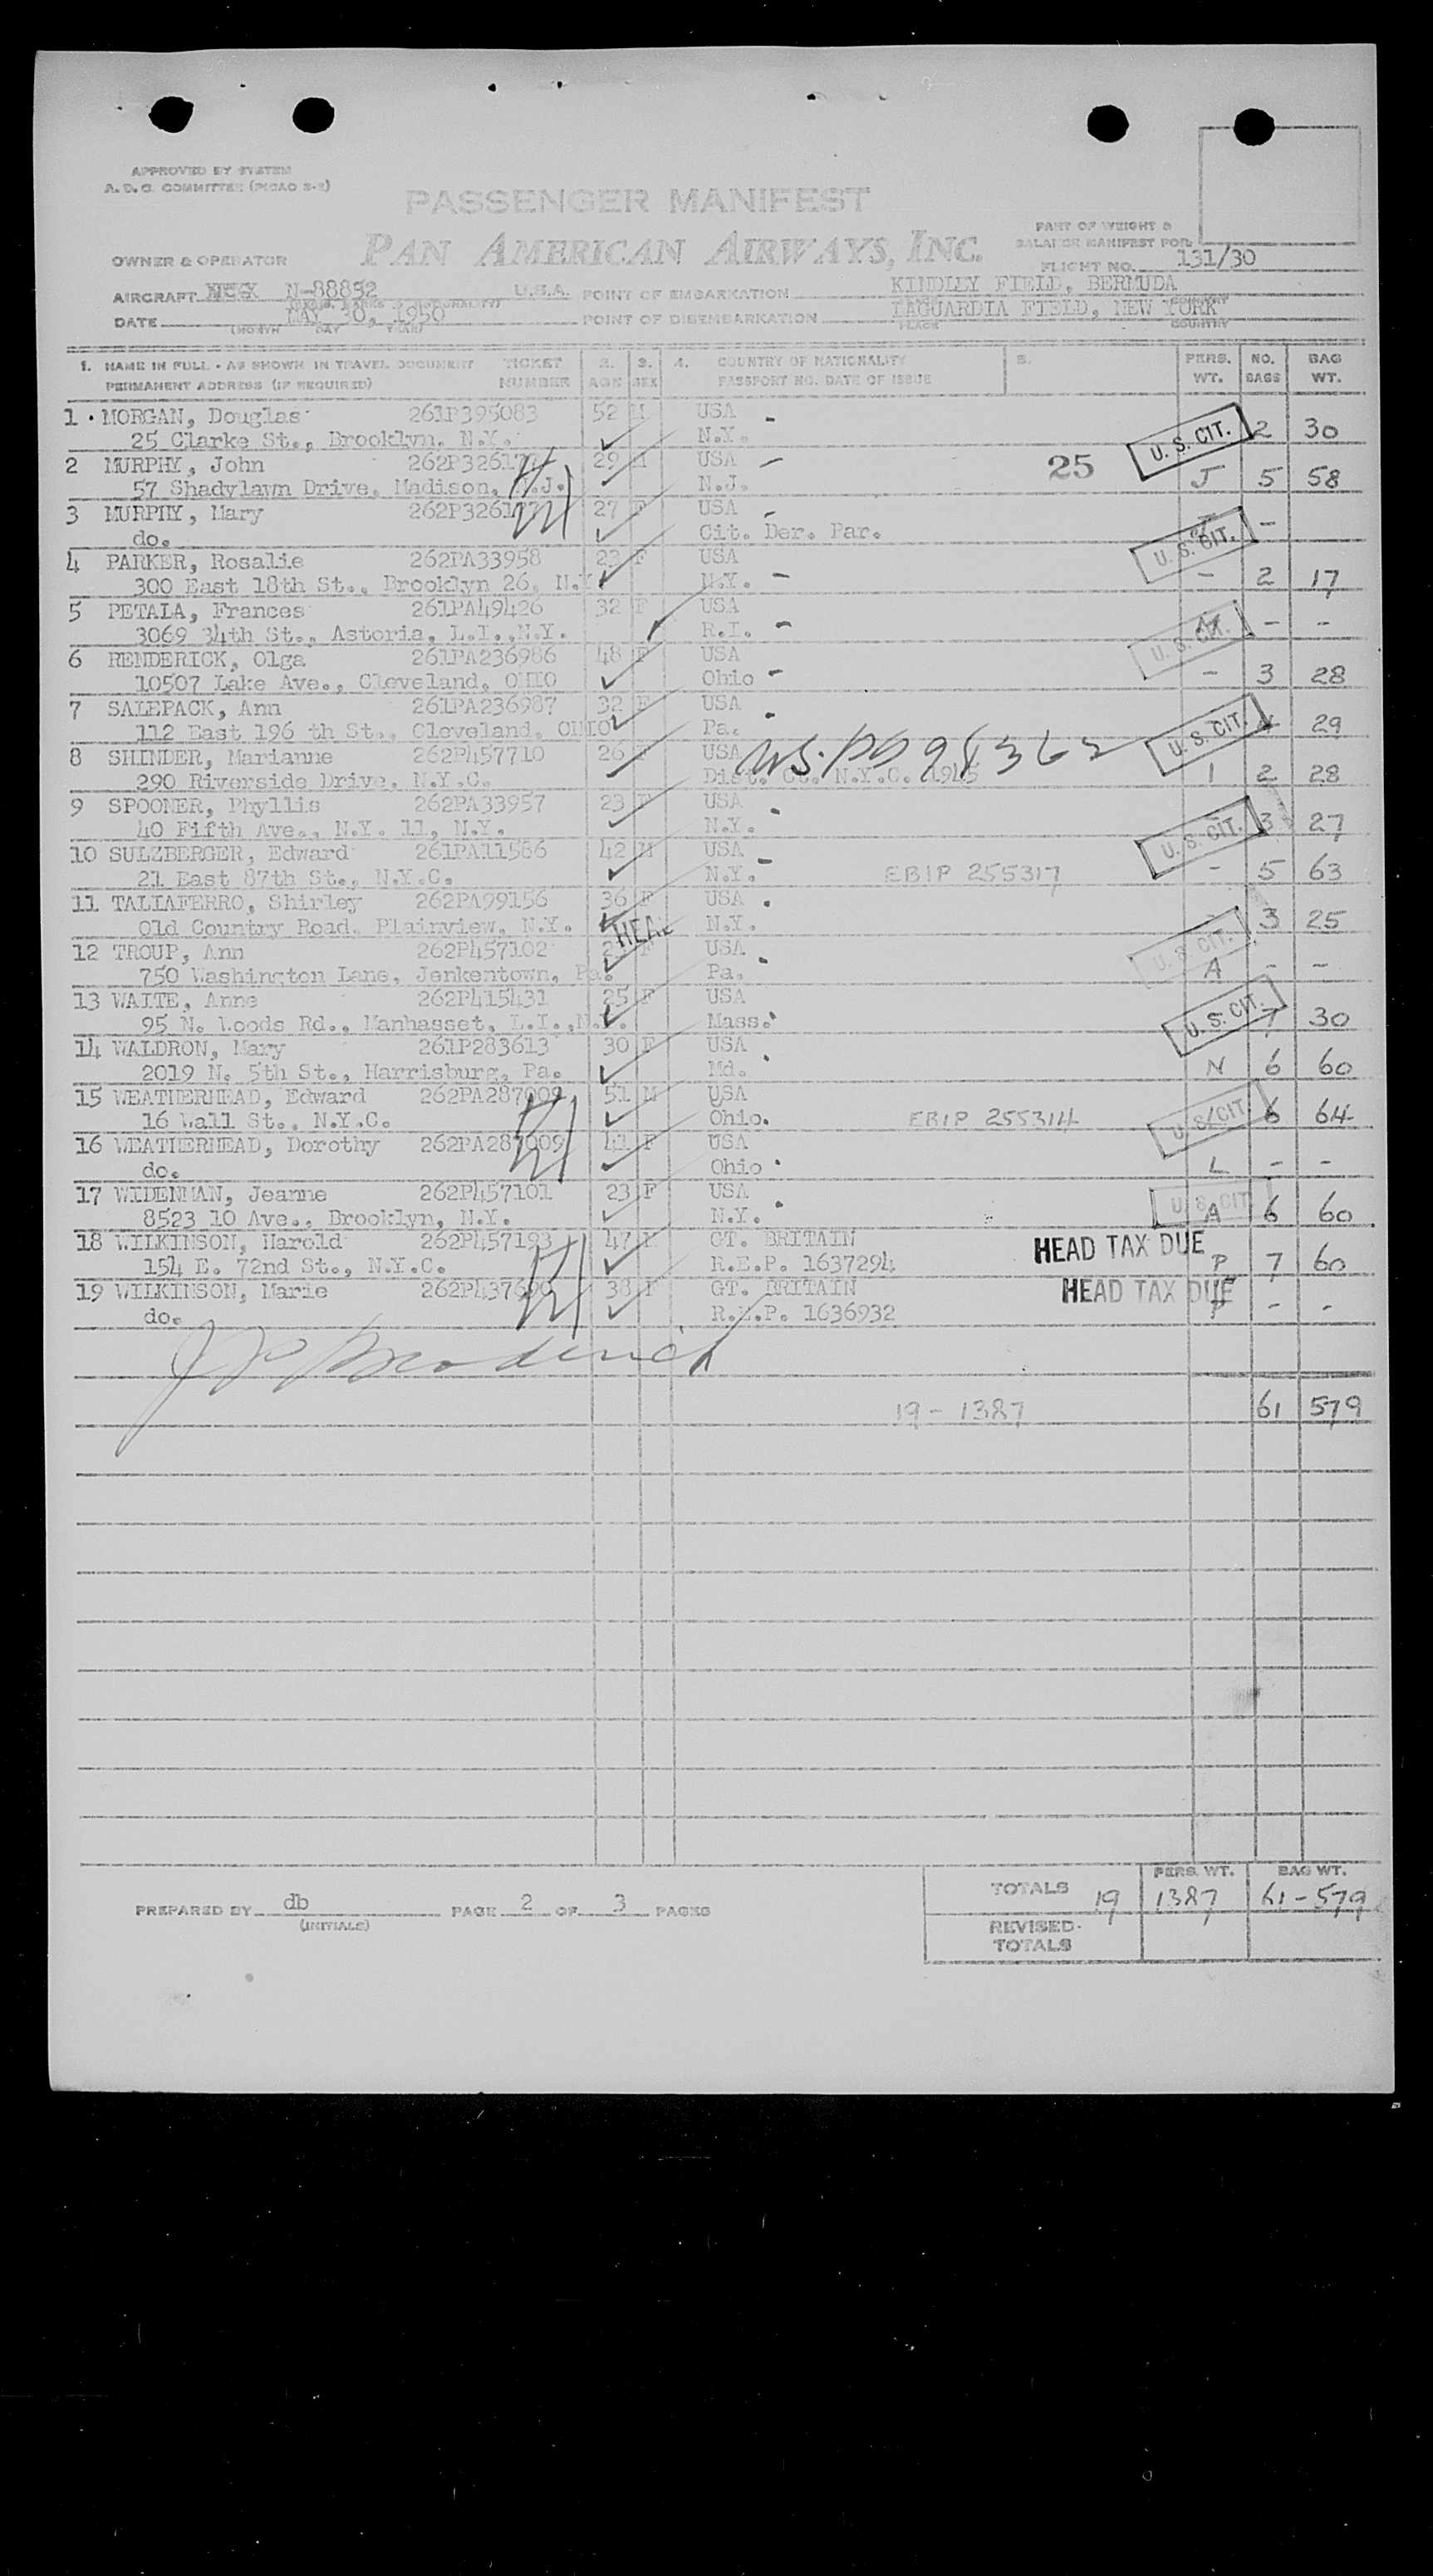 APPROVED BY SYSTEM
A. D. C. COMMITTEE (PICAO 2-2)
PASSENGER MANIFEST
PART OF WEIGHT &
BALANCE MANIFEST FOR
OWNER & OPERATOR PAN AMERICAN AIRWAYS, INC. FLIGHT NO. 131/30
AIRCRAFT N-88832 U.S.A. POINT OF EMBARKATION KINDLEY FIELD, BERMUDA
DATE MAY 30, 1950 POINT OF DISEMBARKATION LAGUARDIA FIELD, NEW YORK
(MONTH DAY YEAR) PLACE COUNTRY
1. NAME IN FULL - AS SHOWN IN TRAVEL DOCUMENT TICKET 2. 3. 4. COUNTRY OF NATIONALITY 5. PERS. NO. BAG
PERMANENT ADDRESS (IF REQUIRED) NUMBER AGE SEX PASSPORT NO. DATE OF ISSUE WT. BAGS WT.
1 MORGAN, Douglas 261P395083 52 USA
25 Clarke St., Brooklyn, N.Y. N.Y. U. S. CIT. 2 30
2 MURPHY, John 29 USA 25
57 Shadylawn Drive, Madison, N.J. N.J. J 5 58
3 MURPHY, Mary 27 F USA
do. Cit. Der. Par. U. S. CIT. -
4 PARKER, Rosalie 262PA33958 23 F USA
300 East 18th St., Brooklyn 26, N.Y. N.Y. - 2 17
5 PETALA, Frances 261PA49426 32 F USA
3069 34th St., Astoria, L.I., N.Y. R.I. U. S. CIT. - -
6 RENDERICK, Olga 261PA236986 48 F USA
10507 Lake Ave., Cleveland, OHIO Ohio - 3 28
7 SALEPACK, Ann 261PA236987 32 F USA
112 East 196 th St., Cleveland, OHIO Pa. U. S. CIT. 29
8 SHINDER, Marianne 262P457710 26 F USA
290 Riverside Drive, N.Y.C. Dist. Ct. N.Y.C. 1945 1 2 28
9 SPOONER, Phyllis 262PA33957 23 F USA
40 Fifth Ave., N.Y. 11, N.Y. N.Y. U. S. CIT. 3 27
10 SULZBERGER, Edward 261PA11586 42 M USA
21 East 87th St., N.Y.C. N.Y. EBIP 255317 - 5 63
11 TALIAFERRO, Shirley 262PA99156 36 F USA
Old Country Road, Plainview, N.Y. HEAD N.Y. 3 25
12 TROUP, Ann 262P457102 F USA U. S. CIT.
750 Washington Lane, Jenkentown, Pa. Pa. A - -
13 WAITE, Anne 262P415431 25 F USA
95 N. Woods Rd., Manhasset, L.I., N.Y. Mass. U. S. CIT. 7 30
14 WALDRON, Mary 261P283613 30 F USA
2019 N. 5th St., Harrisburg, Pa. Md. N 6 60
15 WEATHERHEAD, Edward 262PA287009 51 M USA
16 Wall St., N.Y.C. Ohio. EBIP 255314 U. S. CIT 6 64
16 WEATHERHEAD, Dorothy 262PA287009 41 F USA
do. Ohio L - -
17 WIDENMAN, Jeanne 262P457101 23 F USA
8523 10 Ave., Brooklyn, N.Y. N.Y. U. S. CIT A 6 60
18 WILKINSON, Harold 262P457193 47 GT. BRITAIN HEAD TAX DUE
154 E. 72nd St., N.Y.C. R.E.P. 1637294 P 7 60
19 WILKINSON, Marie 38 F GT. BRITAIN HEAD TAX DUE
do. R.E.P. 1636932 - -
19 - 1387 61 579
PERS. WT. BAG WT.
TOTALS 19 1387 61-579
PREPARED BY db PAGE 2 OF 3 PAGES
(INITIALS)
REVISED
TOTALS